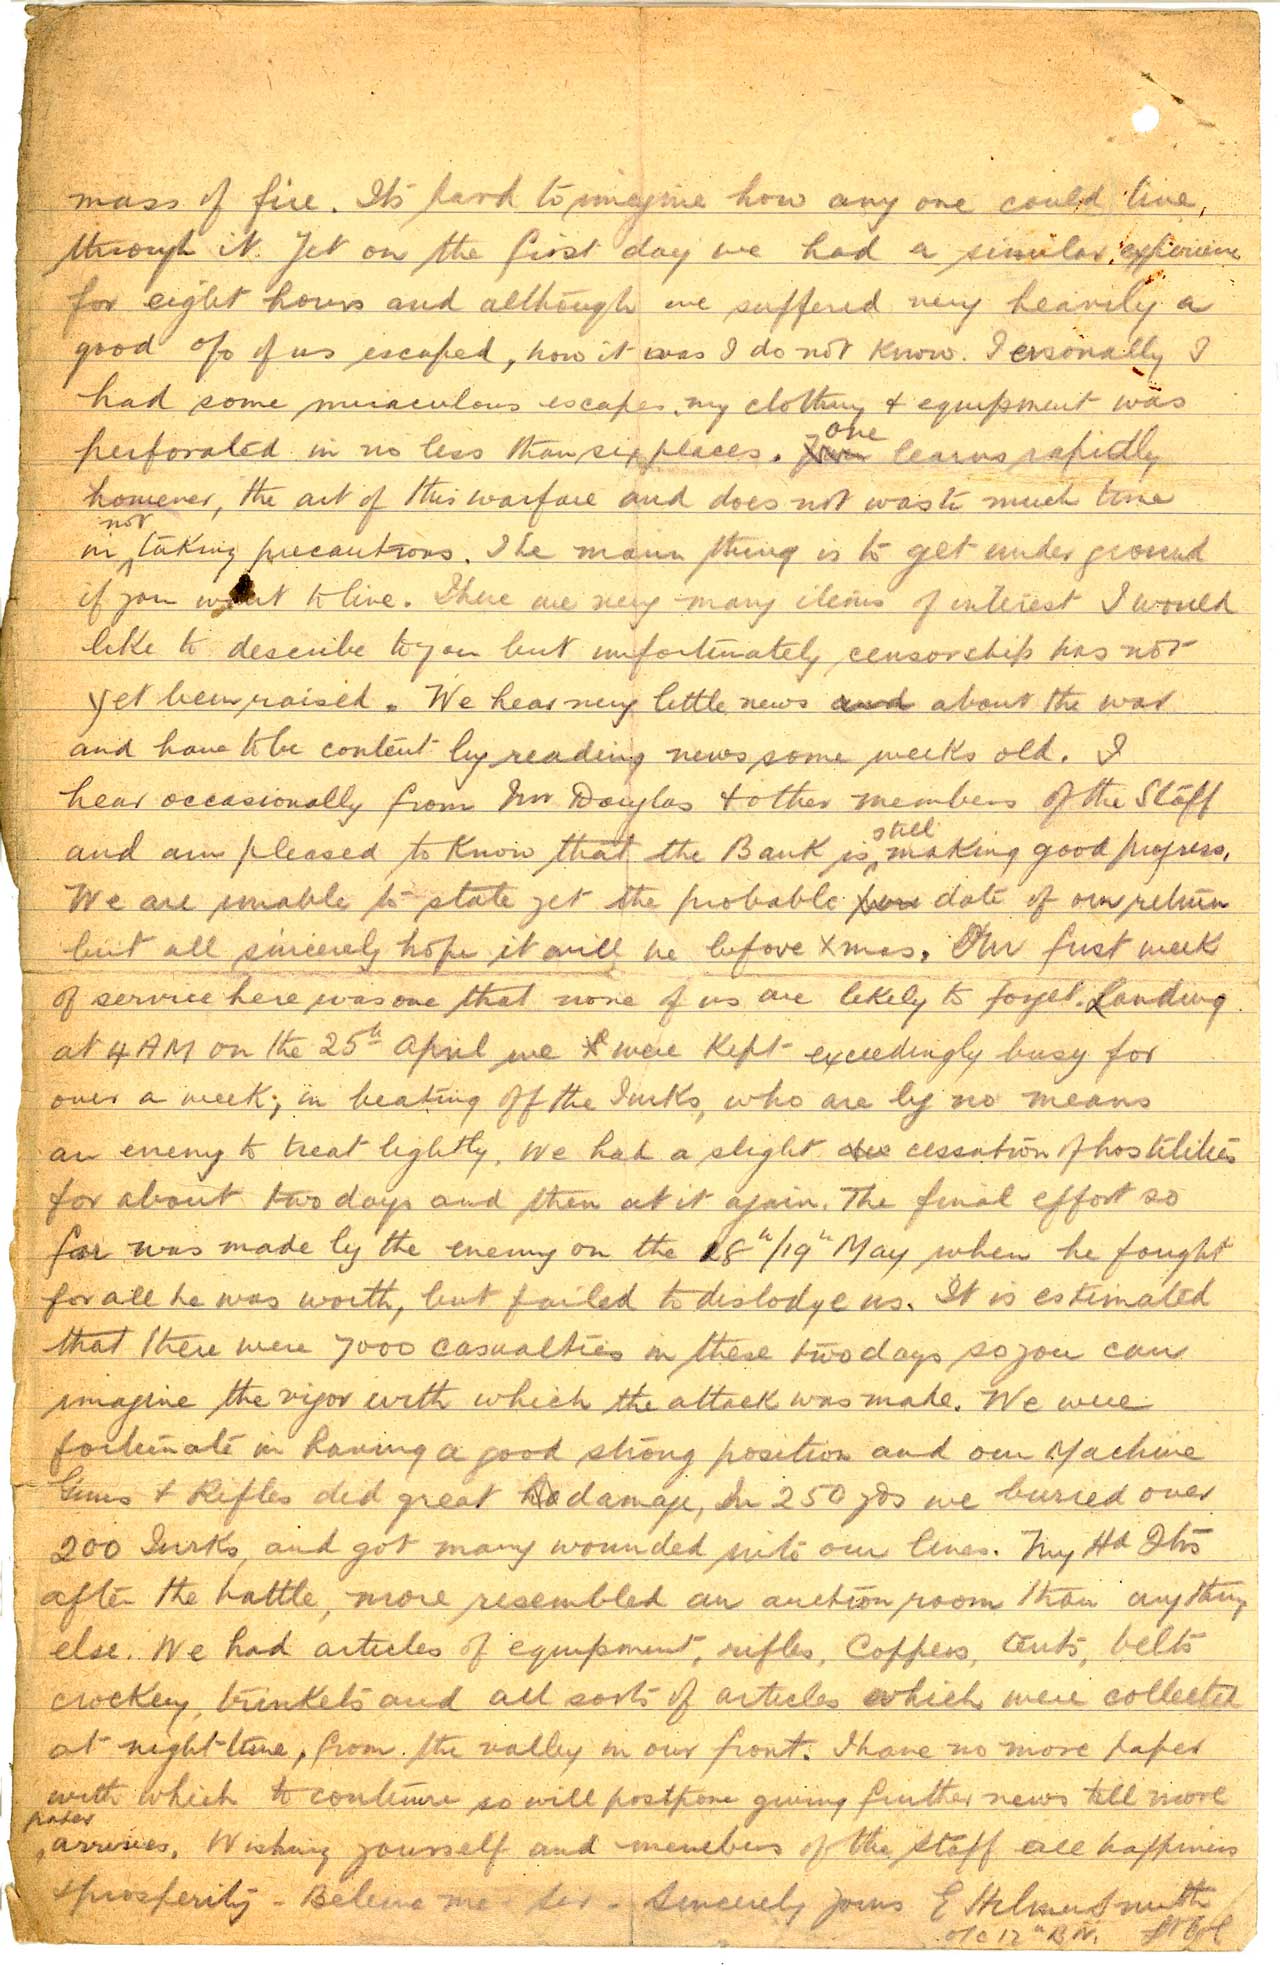 mass of fire. Its hard to imagine how any one could live,
through it. Yet on the first day we had a similar experience
for eight hours and although we suffered very heavily a
good o/o of us escaped, how it was I do not know. Personally I
had some miraculous escapes, my clothing & equipment was
perforated in no less than six places. one learns rapidly
however, the art of this warfare and does not waste much time
in not taking precautions. The main thing is to get under ground
if you want to live. There are very many items of interest I would
like to describe to you but unfortunately censorship has not
yet been raised. We hear very little news and about the war
and have to be content by reading news some weeks old. I
hear occasionally from Mr Douglas & other members of the Staff
and am pleased to know that the Bank is still making good progress.
We are unable to state yet the probable date of our return
but all sincerely hope it will be before Xmas. Our first week
of service here was one that none of us are likely to forget. Landing
at 4 AM on the 25th April we were kept exceedingly busy for
over a week; in beating off the Turks, who are by no means
an enemy to treat lightly. We had a slight cessation of hostilities
for about two days and then at it again. The final effort so
far was made by the enemy on the 18th/19th May when he fought
for all he was worth, but failed to dislodge us. It is estimated
that there were 7000 casualties in these two days so you can
imagine the vigor with which the attack was made. We were
fortunate in having a good strong position and our Machine
Guns & Rifles did great damage, In 250 yds we buried over
200 Turks, and got many wounded into our lines. My Hd Qtrs
after the battle, more resembled an auction room than anything
else. We had articles of equipment, rifles, Coppers, tents, belts
crockery, trinkets and all sorts of articles which were collected
at night time, from the valley in our front. I have no more paper
with which to continue so will postpone giving further news till more
paper arrives. Wishing yourself and members of the Staff all happiness
& prosperity - Believe me Sir - Sincerely yours E Hilmer Smith
O/C 12th BN. Lt Col